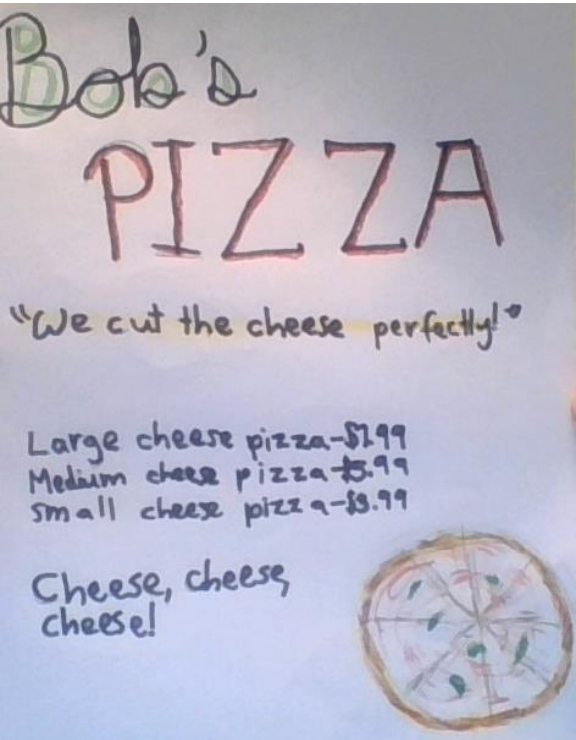 Bob's
PIZZA
"We cut the cheese perfectly!"
Large cheese pizza-$7.99
Medium cheese pizza-$5.99
Small cheese pizza-$3.99
Cheese, cheese,
cheese!